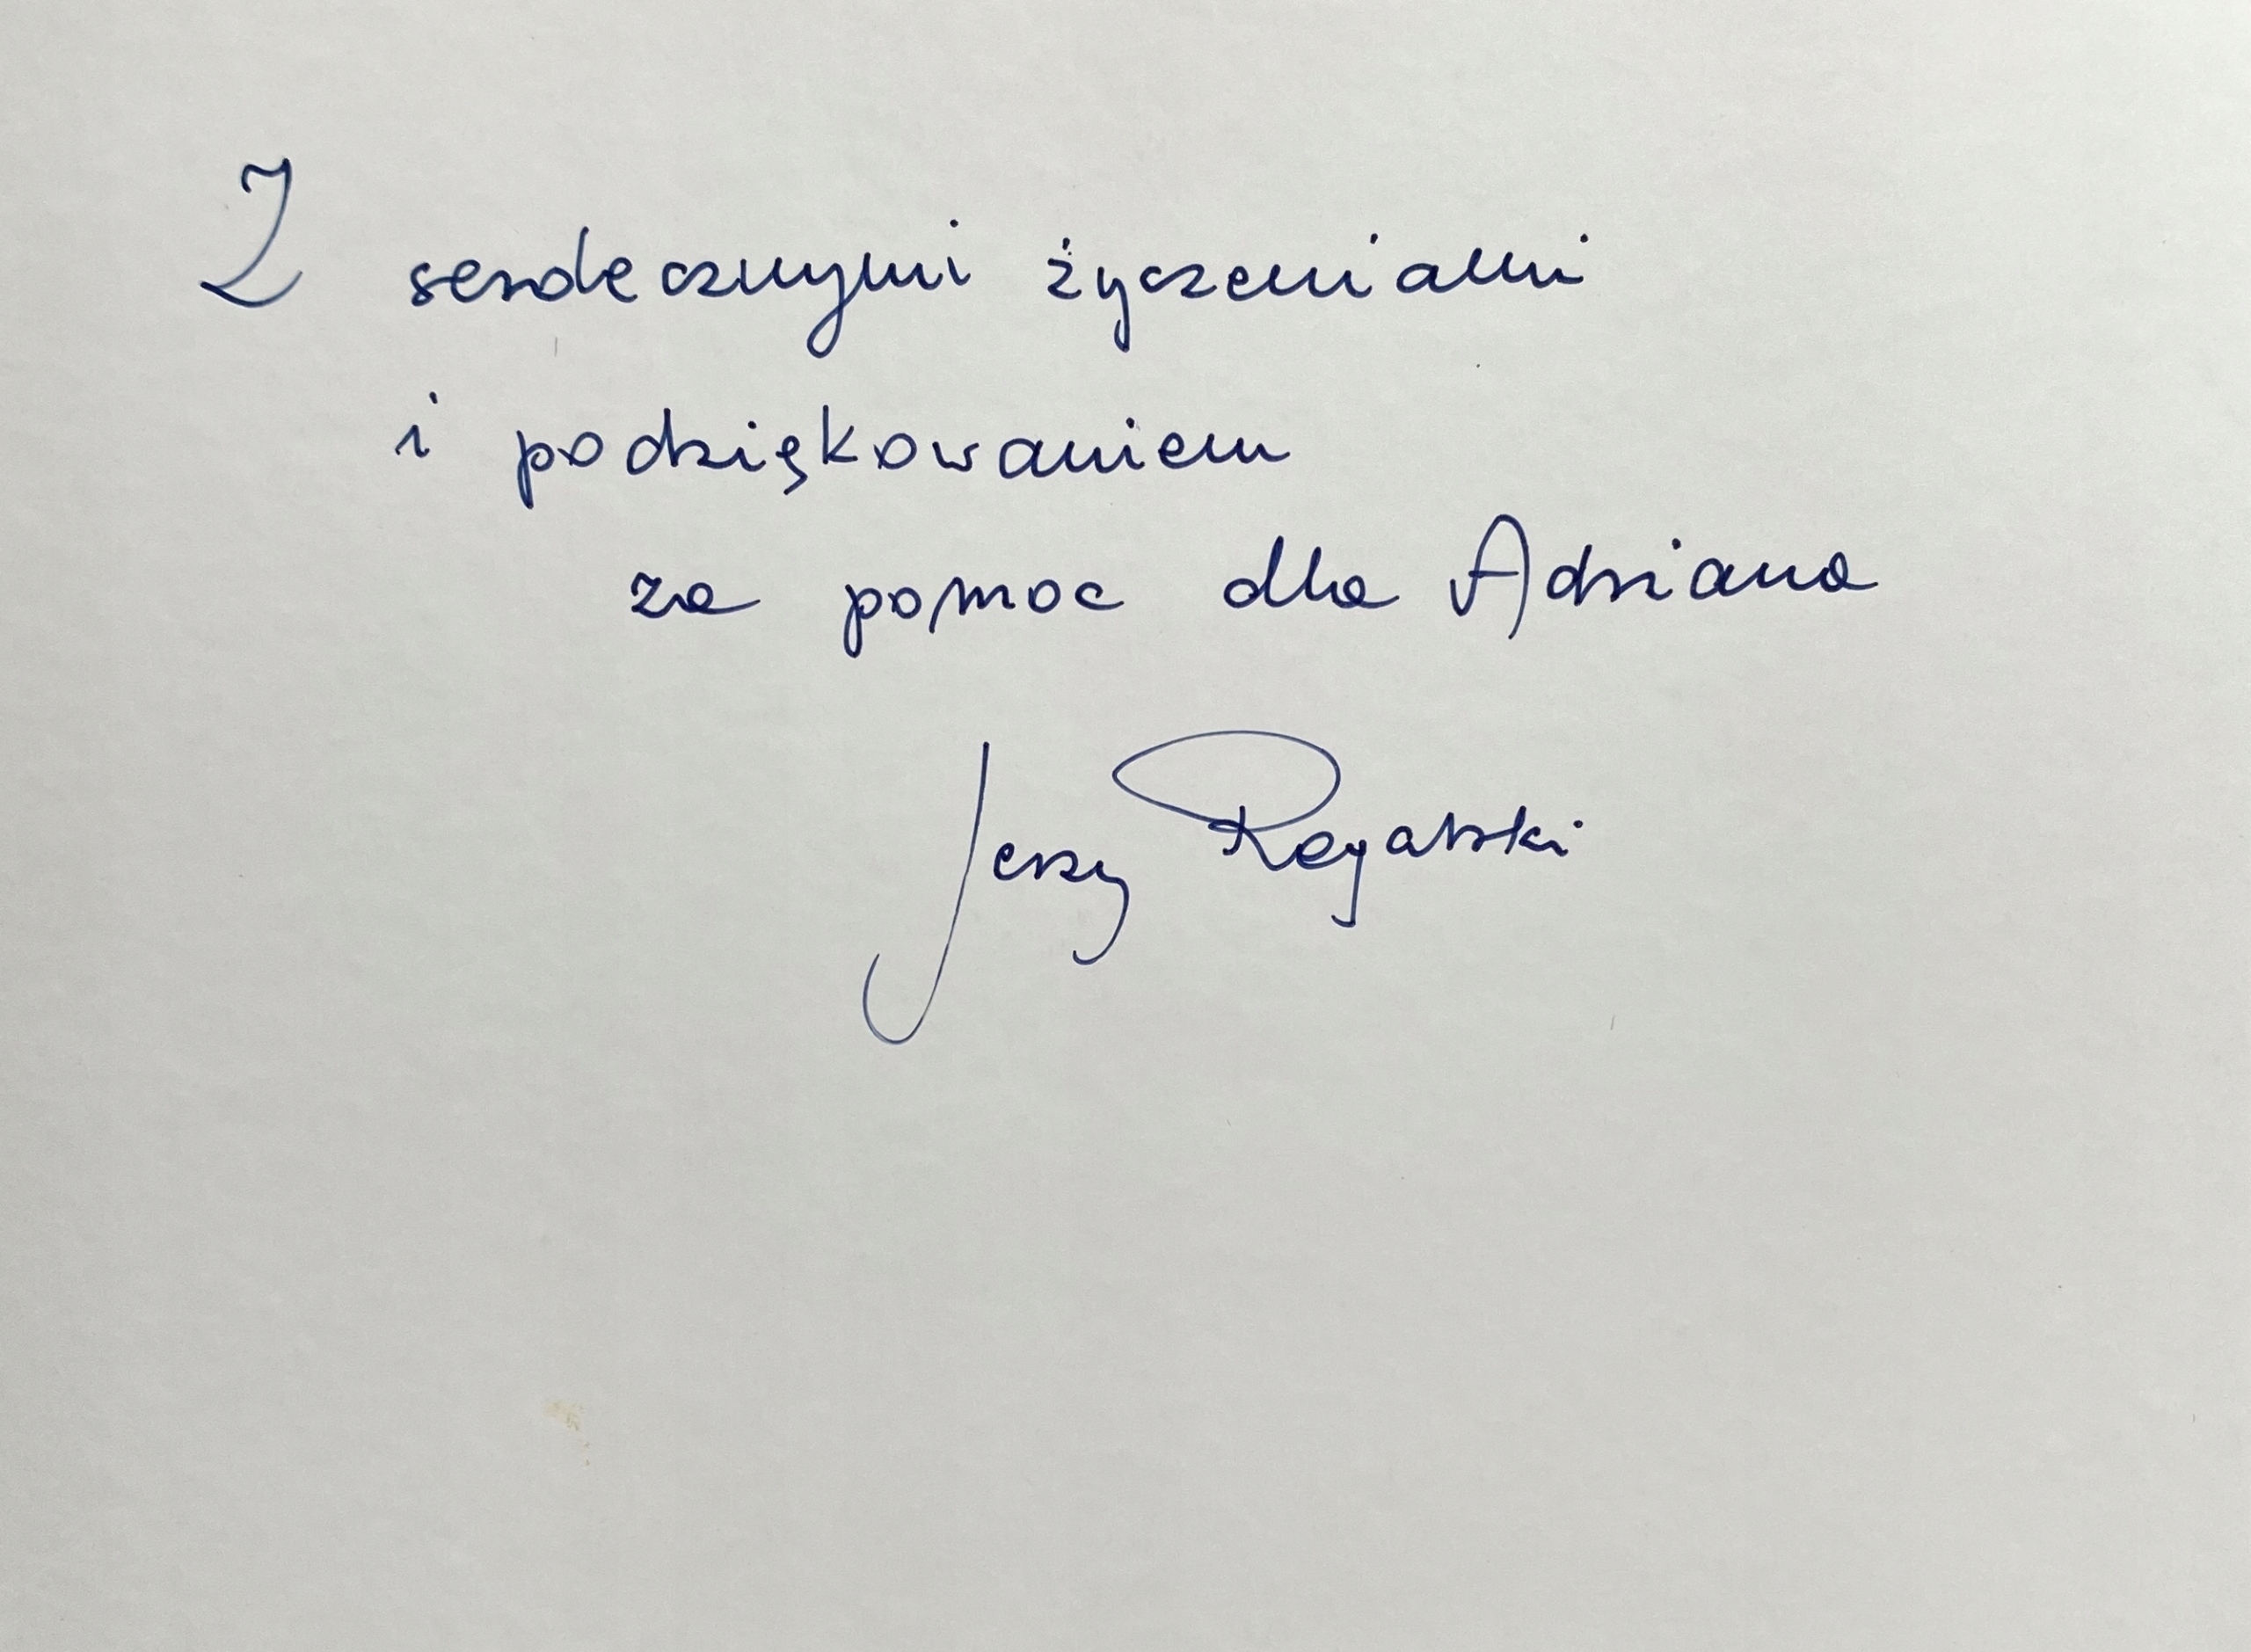 Z serdecznymi życzeniami
i podziękowaniem
za pomoc dla Adriana
Jerzy Rogalski